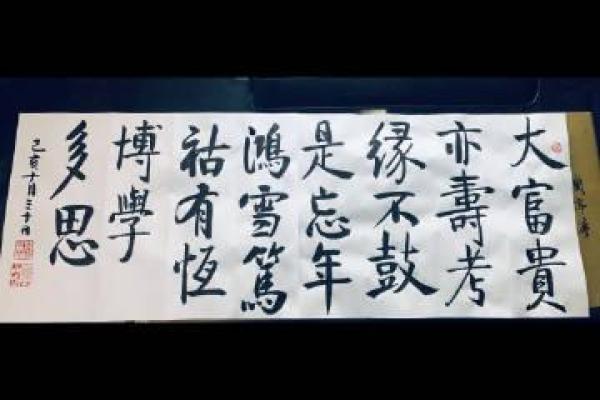 大富貴
亦壽考
緣不鼓
是忘年
鴻雪篤
祜有恆
博學
多思
己亥十月三十日